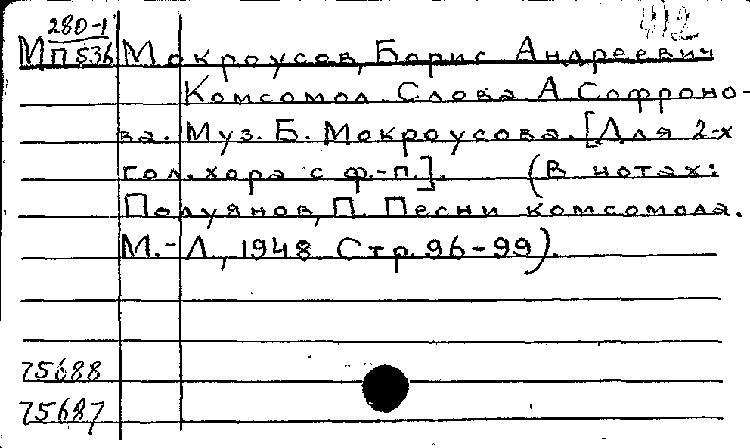 280-1 412
М П536 Мокроусов, Борис Андреевич
Комсомол. Слова А Софроно-
ва. Муз. Б. Мокроусова. [Для 2-х
гол. хора с ф.-п.]. (В нотах:
Полуянов, П. Песни комсомола.
М.-Л., 1948 Стр. 96-99).
75688
75687